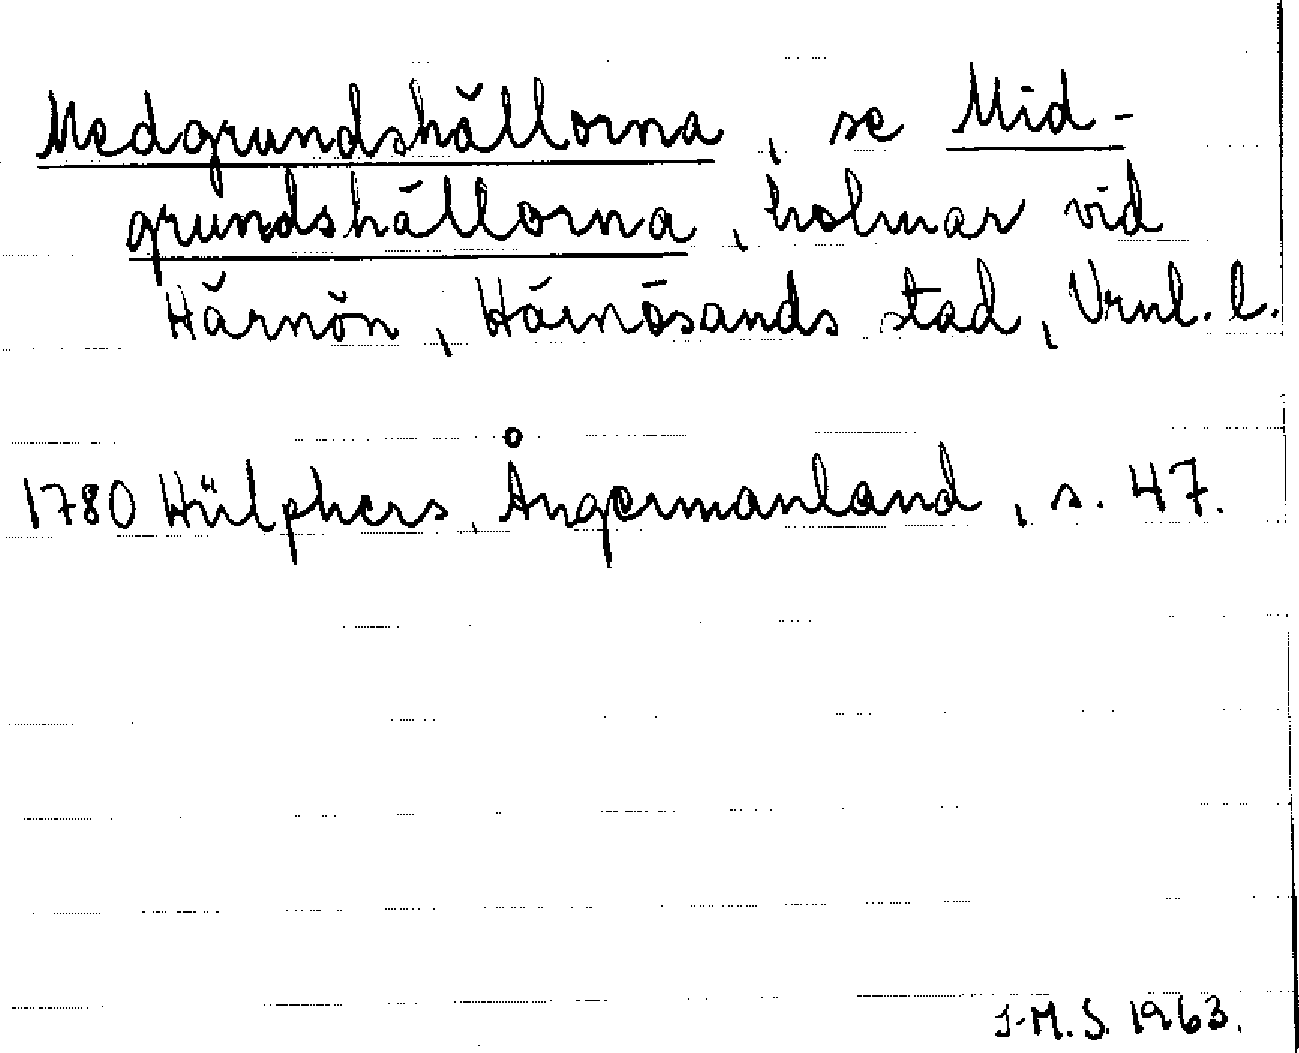 Medgrundshällorna, se Mid-
grundshällorna, holmar vid
Härnön, Härnösands stad, Vrnl. l.
1780 Hülphers, Ångermanland, s. 47.
I-M. S. 1963.